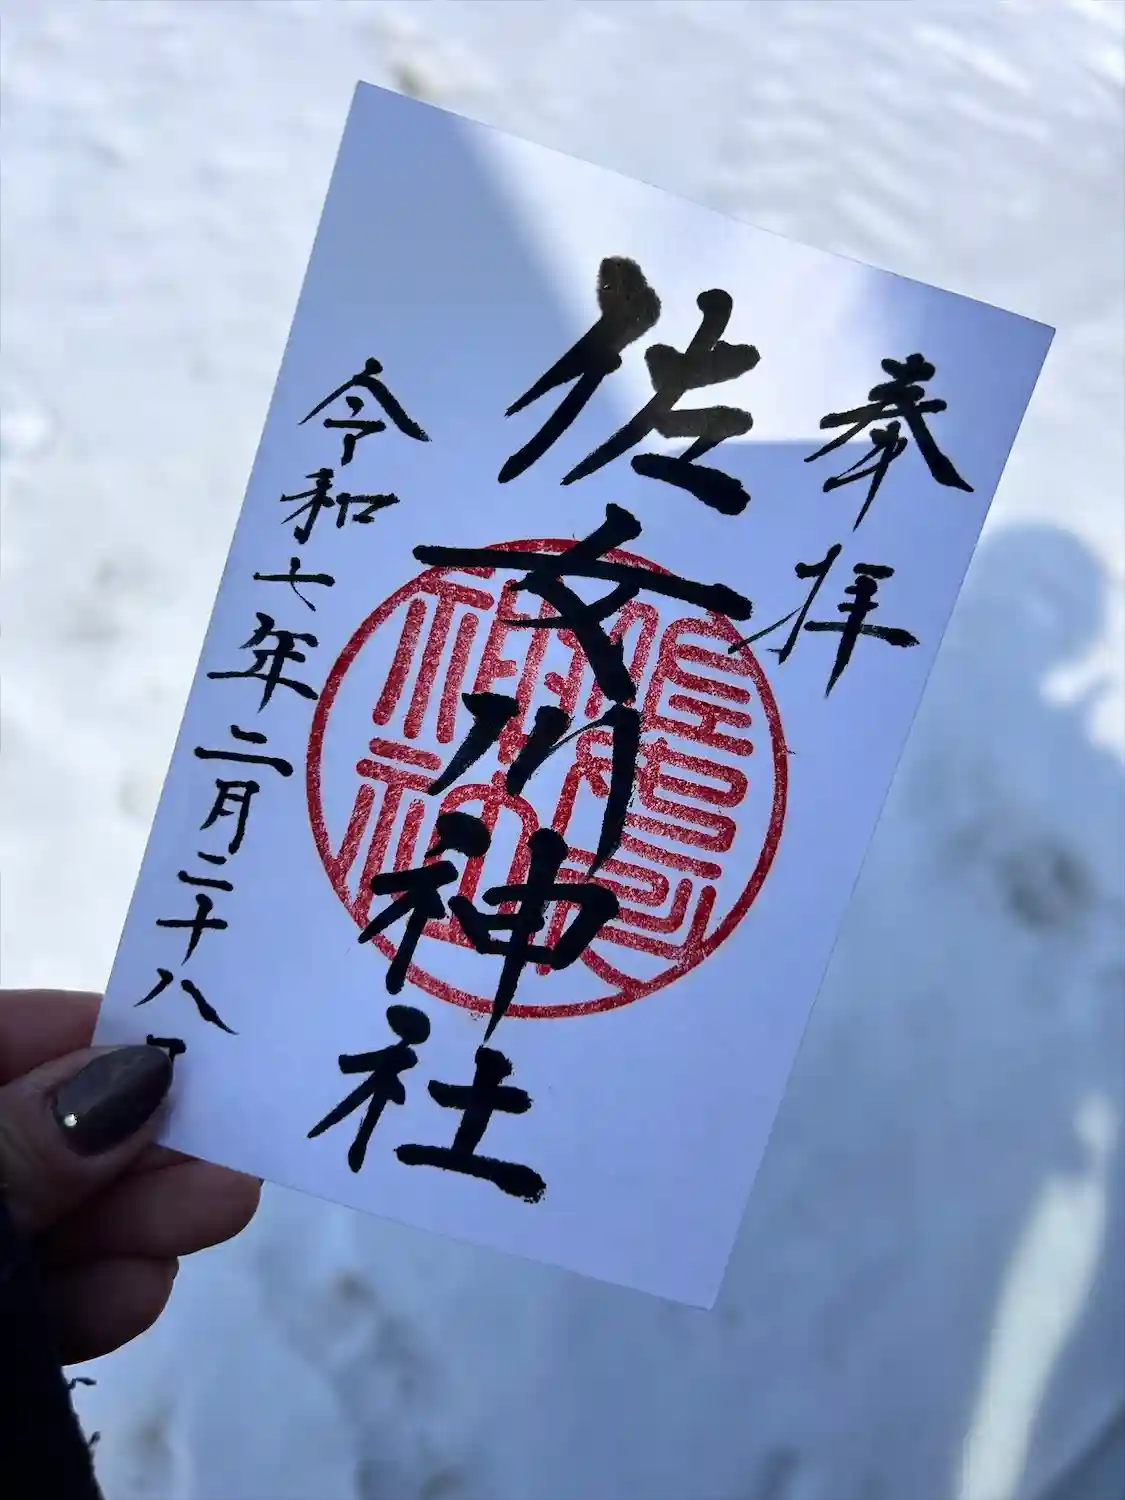 奉拝
佐女川神社
令和七年二月二十八